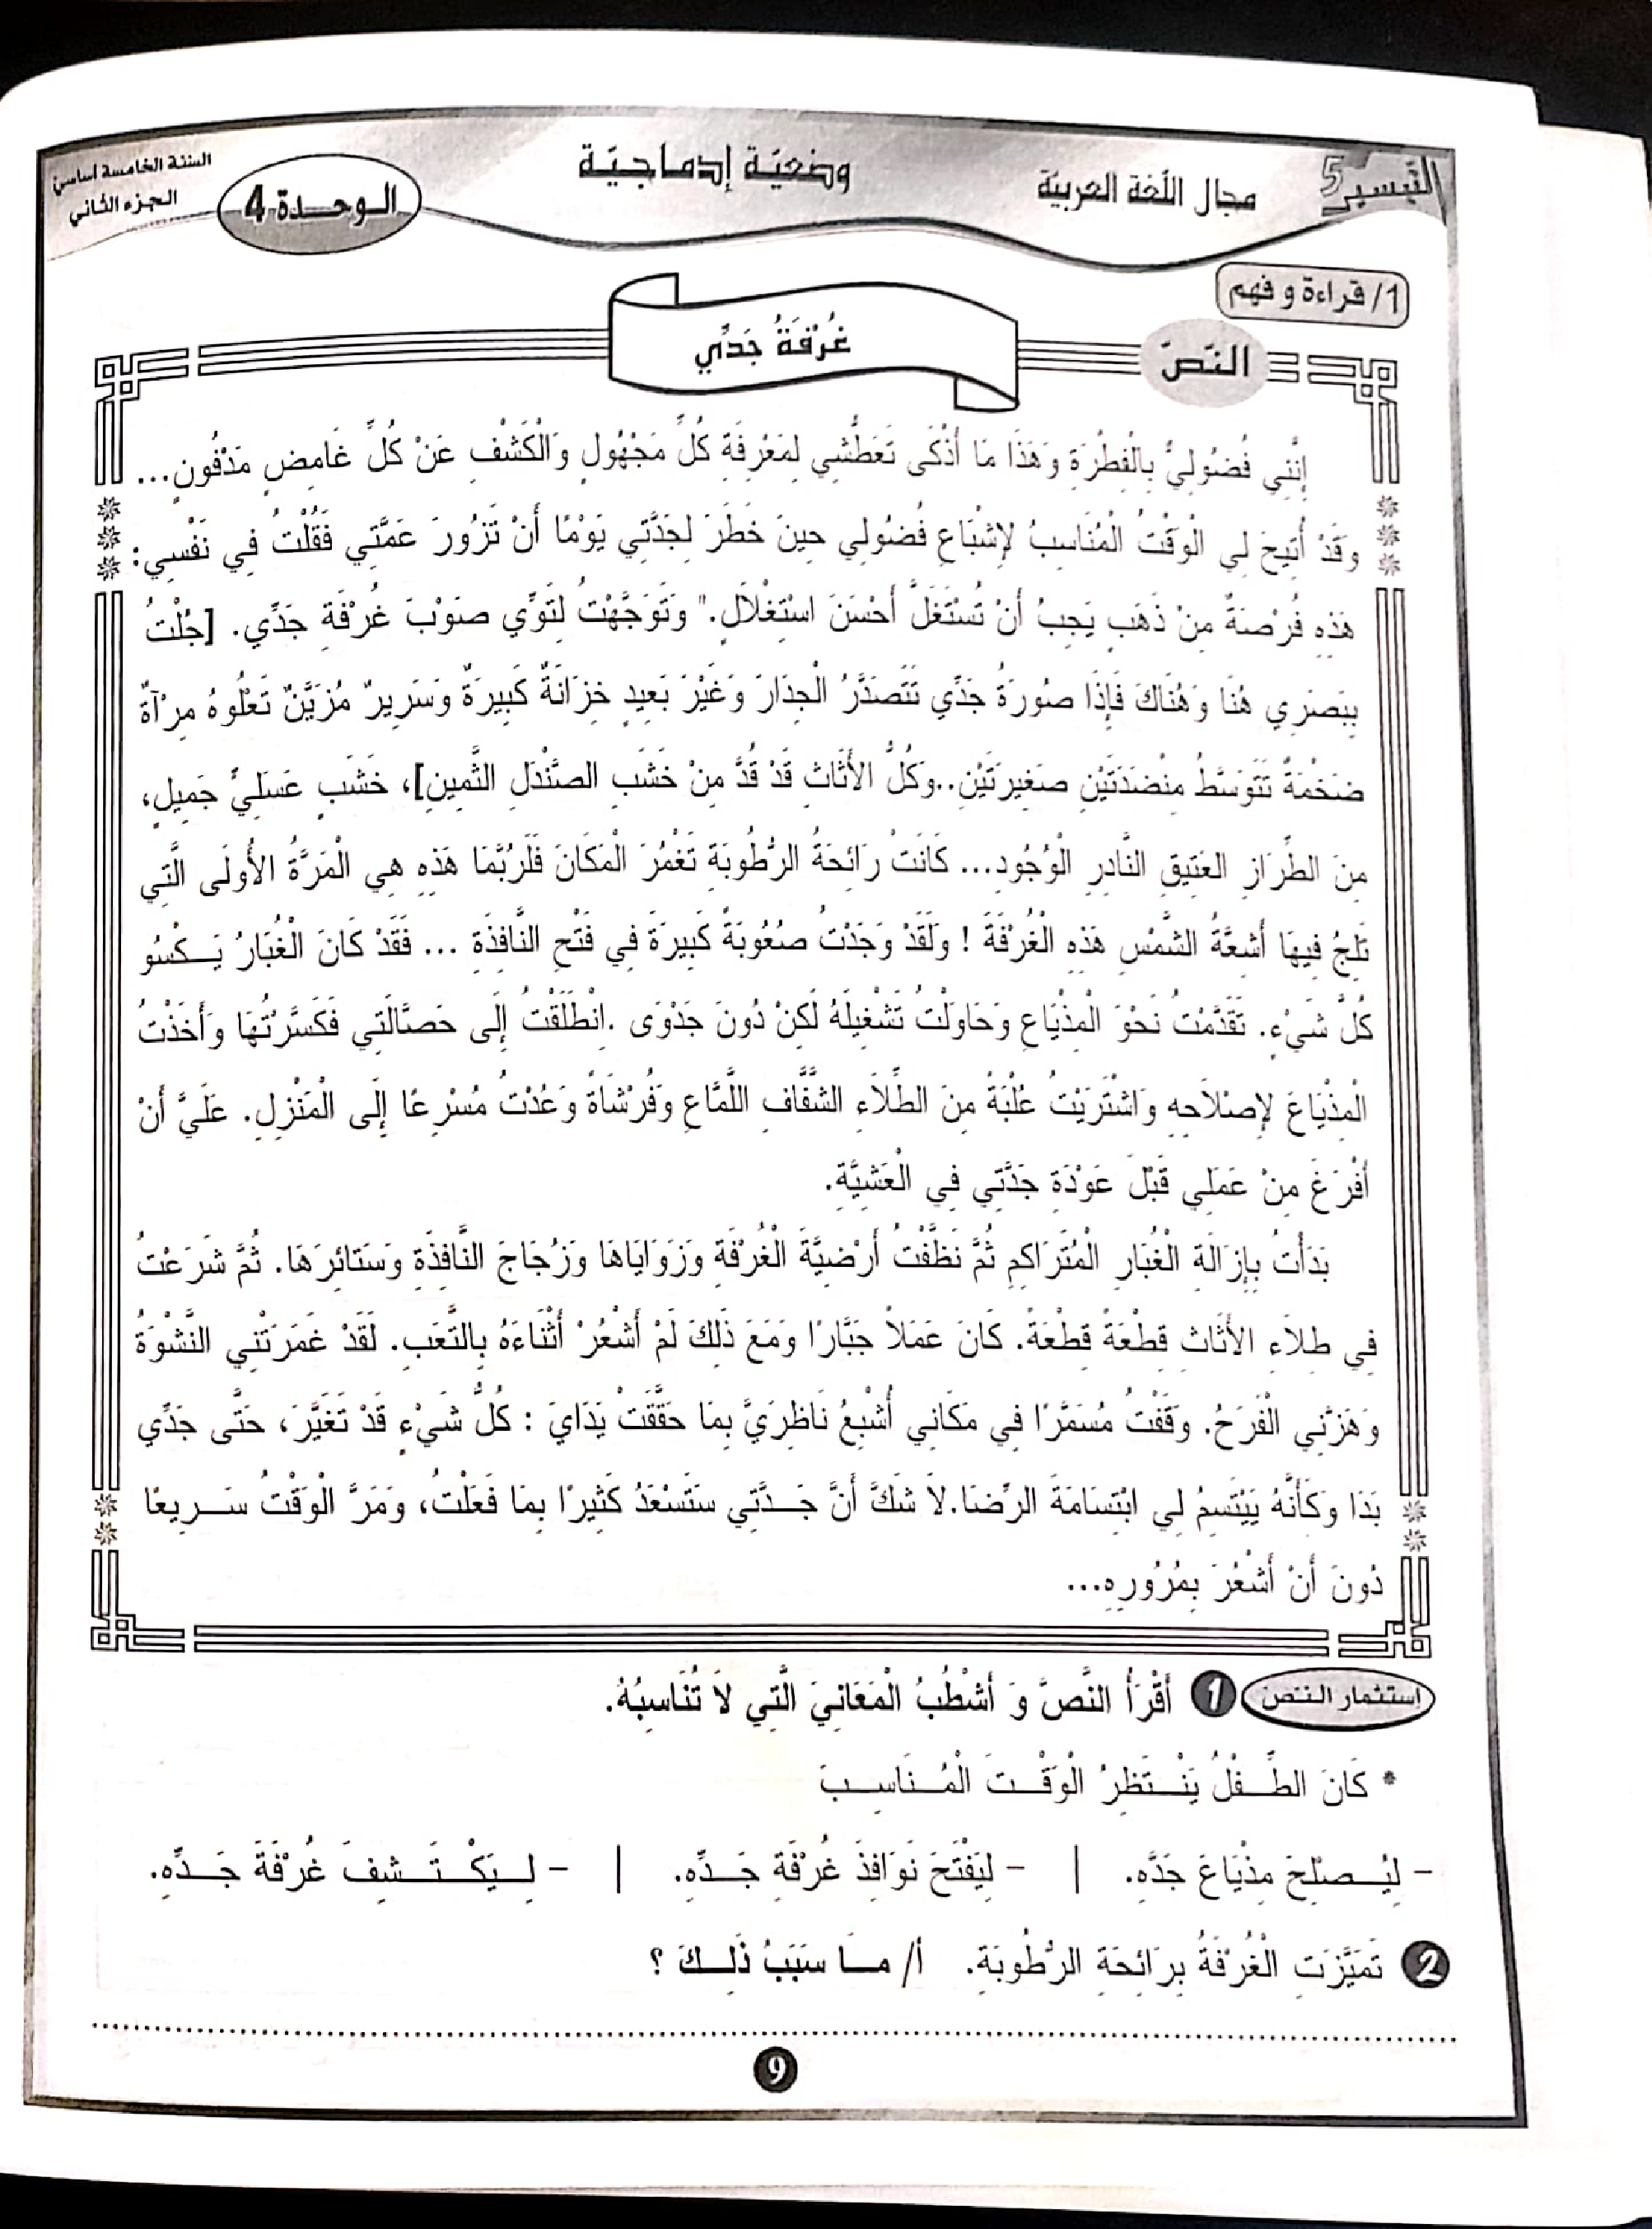 التيسير 5
مجال اللغة العربية
وضعيّة إدماجيّة
الوحدة 4
السنة الخامسة أساسي
الجزء الثاني
1/ قراءة و فهم
النّصّ
غُرْفَةُ جَدِّي
إِنَّنِي فُضُولِيٌّ بِالْفِطْرَةِ وَهَذَا مَا أَذْكَى تَعَطُّشِي لِمَعْرِفَةِ كُلِّ مَجْهُولٍ وَالْكَشْفِ عَنْ كُلِّ غَامِضٍ مَدْفُونٍ...
وَقَدْ أُتِيحَ لِي الْوَقْتُ الْمُنَاسِبُ لِإِشْبَاعِ فُضُولِي حِينَ خَطَرَ لِجَدَّتِي يَوْمًا أَنْ تَزُورَ عَمَّتِي فَقُلْتُ فِي نَفْسِي:
هَذِهِ فُرْصَةٌ مِنْ ذَهَبٍ يَجِبُ أَنْ تُسْتَغَلَّ أَحْسَنَ اسْتِغْلَالٍ." وَتَوَجَّهْتُ لِتَوِّي صَوْبَ غُرْفَةِ جَدِّي. [جُلْتُ
بِبَصَرِي هُنَا وَهُنَاكَ فَإِذَا صُورَةُ جَدِّي تَتَصَدَّرُ الْجِدَارَ وَغَيْرَ بَعِيدٍ خِزَانَةٌ كَبِيرَةٌ وَسَرِيرٌ مُزَيَّنٌ تَعْلُوهُ مِرْآةٌ
ضَخْمَةٌ تَتَوَسَّطُ مِنْضَدَتَيْنِ صَغِيرَتَيْنِ..وَكُلُّ الأَثَاثِ قَدْ قُدَّ مِنْ خَشَبِ الصَّنْدَلِ الثَّمِينِ]، خَشَبٍ عَسَلِيٍّ جَمِيلٍ،
مِنَ الطِّرَازِ العَتِيقِ النَّادِرِ الْوُجُودِ... كَانَتْ رَائِحَةُ الرُّطُوبَةِ تَغْمُرُ الْمَكَانَ فَلَرُبَّمَا هَذِهِ هِيَ الْمَرَّةُ الأُولَى الَّتِي
تَلِجُ فِيهَا أَشِعَّةُ الشَّمْسِ هَذِهِ الْغُرْفَةَ ! وَلَقَدْ وَجَدْتُ صُعُوبَةً كَبِيرَةً فِي فَتْحِ النَّافِذَةِ ... فَقَدْ كَانَ الْغُبَارُ يَكْسُو
كُلَّ شَيْءٍ. تَقَدَّمْتُ نَحْوَ الْمِذْيَاعِ وَحَاوَلْتُ تَشْغِيلَهُ لَكِنْ دُونَ جَدْوَى .انْطَلَقْتُ إِلَى حَصَّالَتِي فَكَسَّرْتُهَا وَأَخَذْتُ
الْمِذْيَاعَ لِإِصْلَاحِهِ وَاشْتَرَيْتُ عُلْبَةً مِنَ الطِّلَاءِ الشَّفَّافِ اللَّمَّاعِ وَفُرْشَاةً وَعُدْتُ مُسْرِعًا إِلَى الْمَنْزِلِ. عَلَيَّ أَنْ
أَفْرَغَ مِنْ عَمَلِي قَبْلَ عَوْدَةِ جَدَّتِي فِي الْعَشِيَّةِ.
بَدَأْتُ بِإِزَالَةِ الْغُبَارِ الْمُتَرَاكِمِ ثُمَّ نَظَّفْتُ أَرْضِيَّةَ الْغُرْفَةِ وَزَوَايَاهَا وَزُجَاجَ النَّافِذَةِ وَسَتَائِرَهَا. ثُمَّ شَرَعْتُ
فِي طِلَاءِ الأَثَاثِ قِطْعَةً قِطْعَةً. كَانَ عَمَلاً جَبَّارًا وَمَعَ ذَلِكَ لَمْ أَشْعُرْ أَثْنَاءَهُ بِالتَّعَبِ. لَقَدْ غَمَرَتْنِي النَّشْوَةُ
وَهَزَّنِي الْفَرَحُ. وَقَفْتُ مُسَمَّرًا فِي مَكَانِي أُشْبِعُ نَاظِرَيَّ بِمَا حَقَّقَتْ يَدَايَ : كُلُّ شَيْءٍ قَدْ تَغَيَّرَ، حَتَّى جَدِّي
بَدَا وَكَأَنَّهُ يَبْتَسِمُ لِي ابْتِسَامَةَ الرِّضَا.لاَ شَكَّ أَنَّ جَدَّتِي سَتَسْعَدُ كَثِيرًا بِمَا فَعَلْتُ، وَمَرَّ الْوَقْتُ سَرِيعًا
دُونَ أَنْ أَشْعُرَ بِمُرُورِهِ...
استثمار النص
1 أَقْرَأُ النَّصَّ وَ أَشْطُبُ الْمَعَانِيَ الَّتِي لاَ تُنَاسِبُهُ.
* كَانَ الطِّفْلُ يَنْتَظِرُ الْوَقْتَ الْمُنَاسِبَ
- لِيُصْلِحَ مِذْيَاعَ جَدِّهِ. | - لِيَفْتَحَ نَوَافِذَ غُرْفَةِ جَدِّهِ. | - لِيَكْتَشِفَ غُرْفَةَ جَدِّهِ.
2 تَمَيَّزَتِ الْغُرْفَةُ بِرَائِحَةِ الرُّطُوبَةِ. أ/ مَا سَبَبُ ذَلِكَ ؟
9